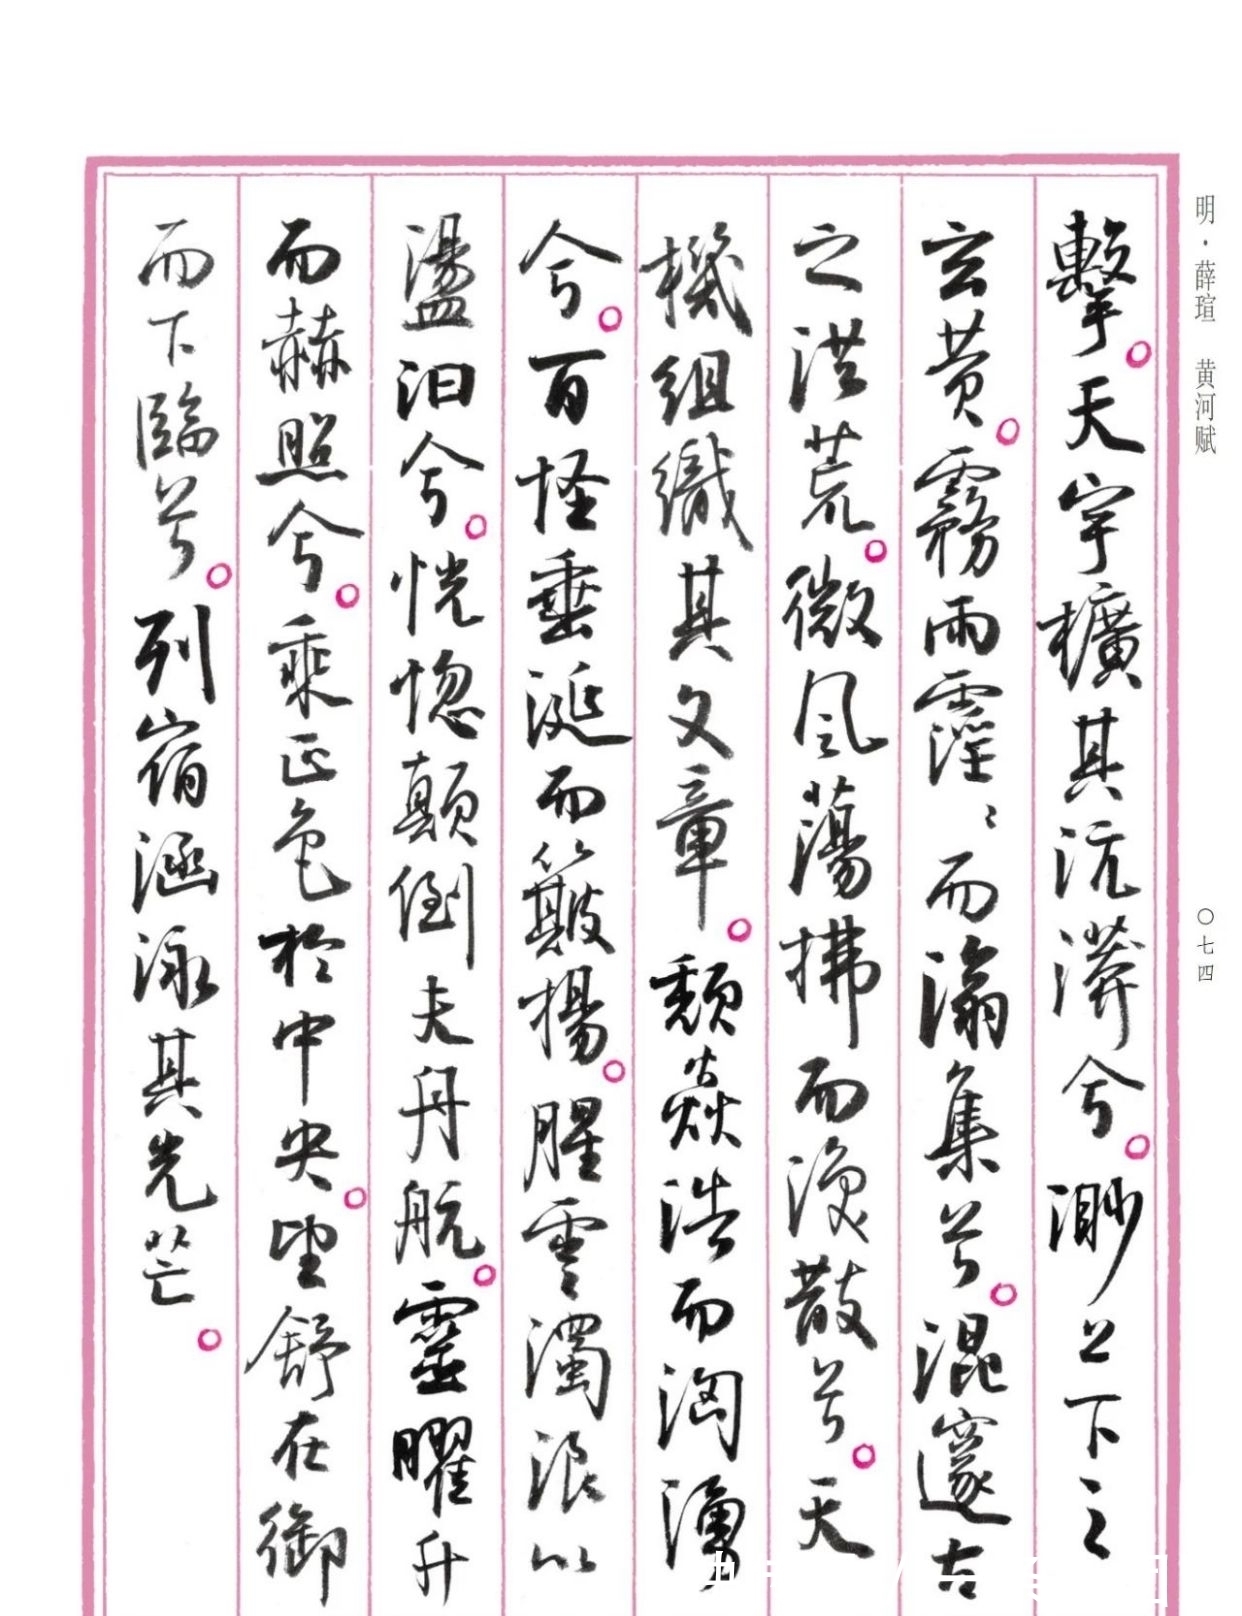 明·薛瑄 黄河赋
〇七四
擊。天宇擴其沆漭兮。渺上下之
玄黄。霧雨霪〻而瀹集兮。混邃古
之洪荒。微風蕩拂而渙散兮。天
機組織其文章。頹飇浩而洶湧
兮。百怪垂涎而簸揚。腥雲濁浪以
盪汨兮。恍惚顛倒夫丹航。靈曜升
而赫照兮。乘正色於中央。望舒在御
而下臨兮。列宿涵泳其光芒。